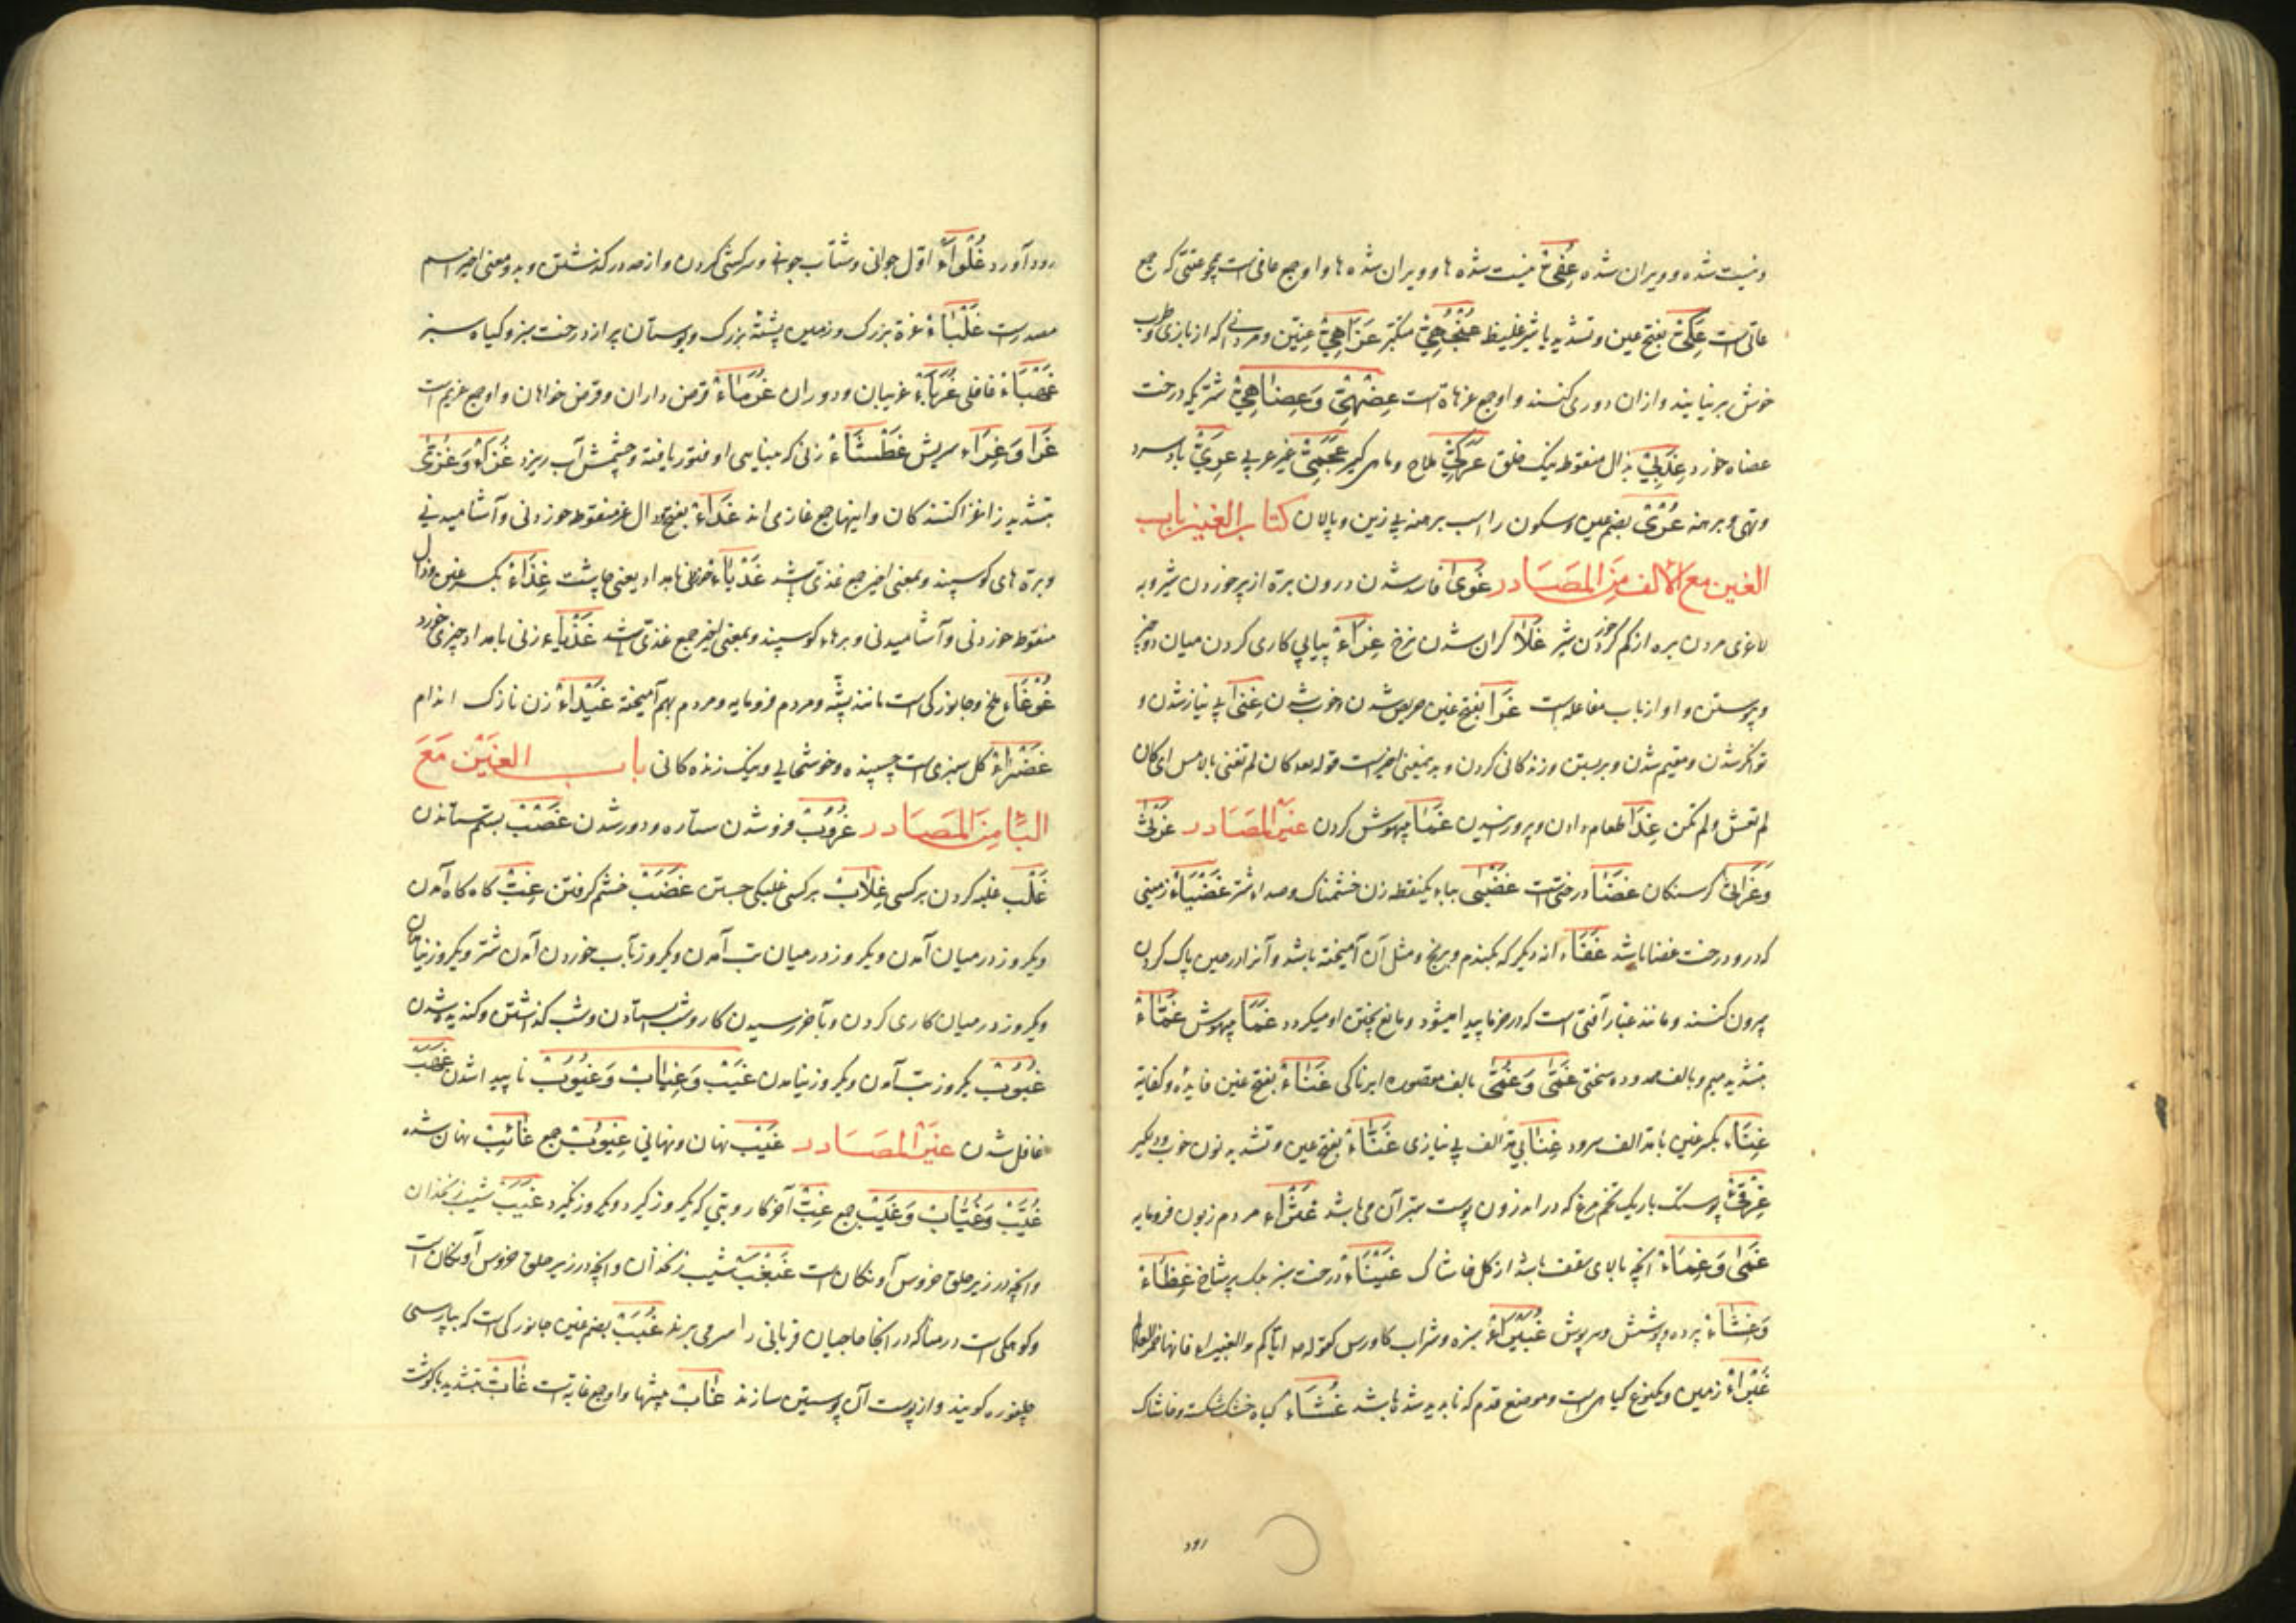 ونیست شده و ویران شده عُفِیّ نیست شده ها و ویران شده ها و او جمع عافی است همچو عتی که جمع
عاتی است عَکِیّ بفتح عین و تشدید یا شیر غلیظ عُنْجُهِیّ متکبر عَزَاهِیّ عنین و مردانی که از بازی و طرب
خوش بر نیایند و از ان دوری کنند و او جمع عزهاة است عِضَهِیّ وَعِضَاهِیّ شتریکه درخت
عضاه خورد عِذَیّ بذال منقوطه نیک خلق عَرَکِیّ ملاح و ماهی گیر عَجَمِیّ غیر عربی عَرِیّ باد سرد
و تهی و برهنه عُرْیٌ بضم عین و سکون را اسب برهنه بی زین و پالان کتاب الغین باب
الغین مع الالف من المصادر غَوَیٰ فاسد شدن درون بره از پر خوردن شیر و به
لاغری مردن بره از کم خوردن شیر غَلَا گران شدن نرخ غِرَاء پیاپی کاری کردن میان دو چیز
و پیوستن و او از باب مفاعله است غَرَا بفتح غین حریص شدن و خوب شدن غِنَیٰ بی نیاز شدن و
توانگر شدن و مقیم شدن و بر بستن و زندگانی کردن و بدین معنی اخیر است قوله تعالی کان لم تغن بالامس ای کان
لم تعش و لم تکن غِذَا طعام دادن و پرورانیدن غَمَا بیهوش کردن غیر المصادر غَرْثیٰ
وَغَرَاثیٰ گرسنگان غَضَا درختی است غَضْبیٰ بباء یکنقطه زن خشمناک و صد اشتر غَضْیَاء زمینی
که درو درخت غضا باشد غَفَاء انه دیگر که بگندم و برنج و مثل آن آمیخته باشد و آنرا در حین پاک کردن
بیرون کنند و مانند غبار آفتی است که در خرما پیدا میشود و مانع پختن او میگردد غَمَا بیهوش غَمَّاء
بتشدید میم و بالف ممدوده سختی غَمَّیٰ وَغُمَّیٰ بالف مقصوره ابرناکی غَنَاء بفتح غین فایده و کفایة
غِنَاء بکسر غین با مد الف سرود غِنَا بی مد الف بی نیازی غَنَّاء بفتح غین و تشدید نون خوب و دلگیر
غِرْقِئ پوستک باریک تخم مرغ که در اندرون پوست ستبر آن می باشد غَثْرَاء مردم زبون فرومایه
غَمَیٰ وَغِمَاء آنچه بالای سقف باشد از گل و خاشاک غَیْنَاء درخت سبز بسیار شاخ غِطَاء
وَغِشَاء پرده و پوشش و سرپوش غُبَیْرَاء سبزه و شراب گاورس کقوله ص ایاکم و الغبیراء فانها خمر العالم
غَبْرَاء زمین و یکنوع گیاهی است و موضع قدم که ناپدید شده باشد غُثَاء گیاه خشک شکسته و خاشاک
رود
رود آورد غُلَوَاء اول جوانی و شتاب جوانی و سرکشی کردن و از حد در گذشتن و بدو معنی اخیر اسم
مصدر است غَلْبَاء غزه بزرگ و زمین پشته بزرگ و بوستان پر از درخت سبز و گیاه سبز
غُرَبَاء غریبان و دوران غُرَمَاء قرض داران و قرض خواهان و او جمع غریم است
غَرَا وَغِرَاء سریش غَطْشَاء زنی که بینایی او فتور یافته و چشمش آب ریزد غُزَّاء وَغُزّیٰ
بتشدید زا غزا کنندگان و اینها جمع غازی اند غَدَاء بفتح و دال غیر منقوطه خوردنی و آشامیدنی
و بره های گوسپند و بمعنی اخیر جمع غذی باشد غِذَاء بکسر غین و ذال
منقوطه خوردنی و آشامیدنی و بره‌ء گوسپند و بمعنی اخیر جمع غذی باشد غَدْیَاء زنی بامداد چیزی خورد
غَوْغَاء ملخ و جانورکی است مانند پشه و مردم فرومایه و مردم بهم آمیخته غَیْدَاء زن نازک اندام
غَضْرَاء گل سبزی است چسپنده و خوشحالی و نیک زندگانی باب الغین مع
البا من المصادر غُرُوبٌ فرو شدن ستاره و دور شدن غَصْبٌ بستم ستاندن
غَلْب غلبه کردن بر کسی غِلَابٌ بر کسی غلبگی جستن غَضَبٌ خشم گرفتن غِبٌّ گاه گاه آمدن
و یکروز در میان آمدن و یکروز در میان تب آمدن و یکروز بآب خوردن آمدن شتر و یکروز نیامدن
و یکروز در میان کاری کردن و بآخر رسیدن کار و شب استادن و شب گذشتن و گندیده شدن
غُبُوبٌ یکروز تب آمدن و یکروز نیامدن غَیْبٌ وَغِیَابٌ وَغُیُوبٌ ناپیدا شدن
غافل شدن غیر المصادر غَیْبٌ نهان و نهانی غُیُوبٌ جمع غَائِبٌ نهان شده
غُیَّبٌ وَغُیَّابٌ وَغَیَبٌ جمع غِبٌّ آخر کار و تبی که یکروز گیرد و یکروز نگیرد غَبَبٌ شیب زنخدان
و انچه در زیر حلق خروس آونگان است غَبْغَبٌ شیب زنخدان و انچه در زیر حلق خروس آونگان است
و کوهکی است در منا که در انجا حاجیان قربانی را سر می برند بضم غین جانورکی است که بپارسی
گویند و از پوست آن پوستین سازند غَابٌ بیشها و او جمع غابة است غَابٌّ بتشدید با گوشت